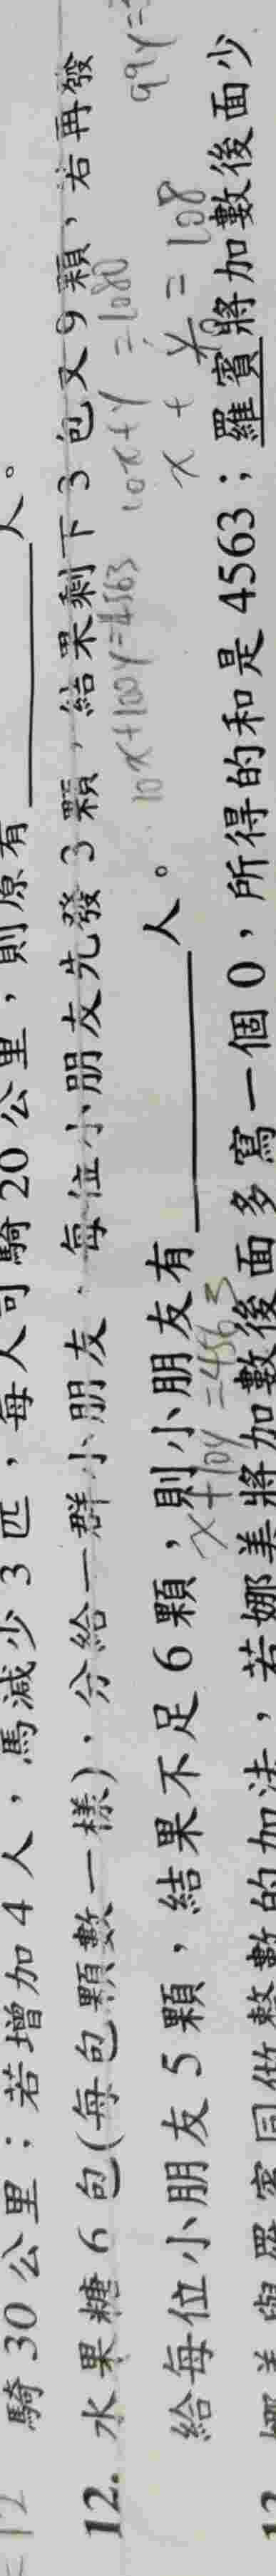 騎 30 公里；若增加 4 人，馬減少 3 匹，每人可騎 20 公里，則原有＿＿＿人。
12. 水果糖 6 包(每包顆數一樣)，分給一群小朋友，每位小朋友先發 3 顆，結果剩下 3 包又 9 顆，若再發
10x+100y=4563 10x+y=1080 99y=
x + y/10 = 108
給每位小朋友 5 顆，結果不足 6 顆，則小朋友有＿＿＿人。
x+10y=4563
同做整數的加法，若娜美將加數後面多寫一個 0，所得的和是 4563；羅賓將加數後面少